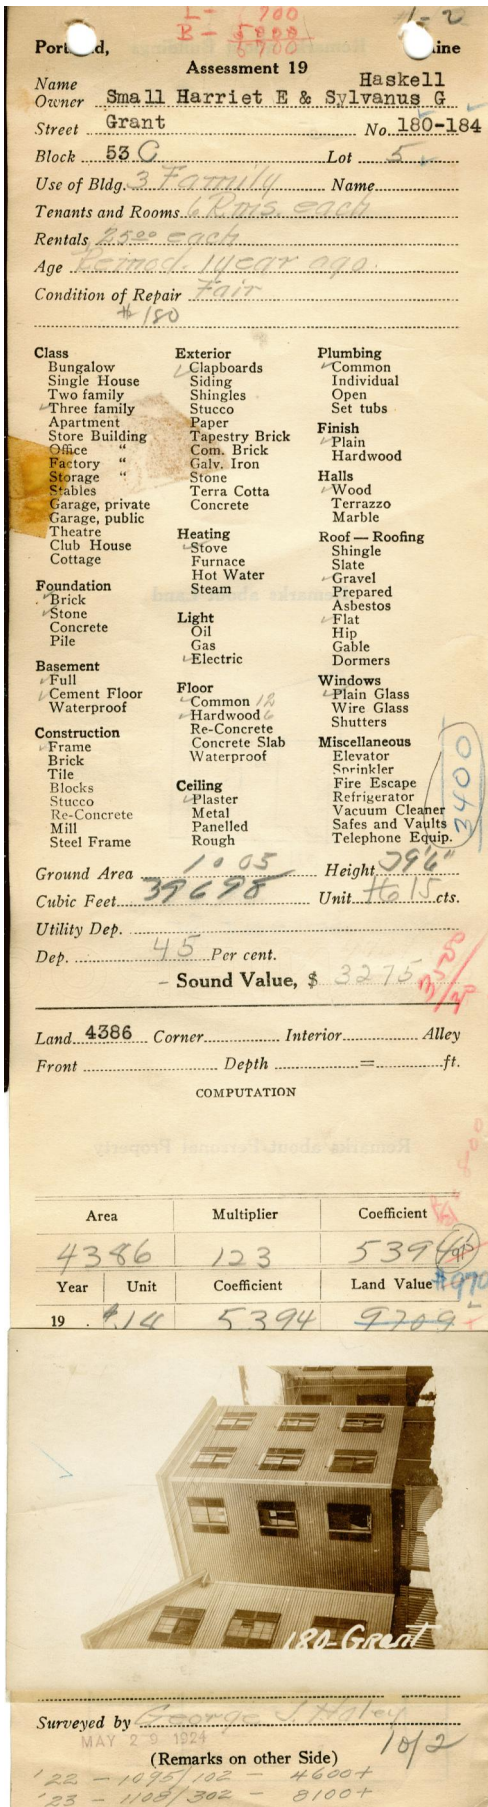 L - 700
B - 6000
6700
#1-2
Portland, Maine
Assessment 19
Name Haskell
Owner Small Harriet E & Sylvanus G
Street Grant No. 180-184
Block 53 C Lot 5
Use of Bldg. 3 Family Name
Tenants and Rooms 6 Rms. each
Rentals 25.00 each
Age Remod. 1 year ago.
Condition of Repair Fair
#180
Class
Bungalow
Single House
Two family
Three family
Apartment
Store Building
Office "
Factory "
Storage "
Stables
Garage, private
Garage, public
Theatre
Club House
Cottage
Foundation
Brick
Stone
Concrete
Pile
Basement
Full
Cement Floor
Waterproof
Construction
Frame
Brick
Tile
Blocks
Stucco
Re-Concrete
Mill
Steel Frame
Exterior
Clapboards
Siding
Shingles
Stucco
Paper
Tapestry Brick
Com. Brick
Galv. Iron
Stone
Terra Cotta
Concrete
Heating
Stove
Furnace
Hot Water
Steam
Light
Oil
Gas
Electric
Floor
Common 12
Hardwood 6
Re-Concrete
Concrete Slab
Waterproof
Ceiling
Plaster
Metal
Panelled
Rough
Plumbing
Common
Individual
Open
Set tubs
Finish
Plain
Hardwood
Halls
Wood
Terrazzo
Marble
Roof — Roofing
Shingle
Slate
Gravel
Prepared
Asbestos
Flat
Hip
Gable
Dormers
Windows
Plain Glass
Wire Glass
Shutters
Miscellaneous
Elevator
Sprinkler
Fire Escape
Refrigerator
Vacuum Cleaner
Safes and Vaults
Telephone Equip.
3400
Ground Area 1005 Height 39'6"
Cubic Feet 39698 Unit 15 cts.
Utility Dep.
Dep. 45 Per cent.
Sound Value, $ 3275
Land 4386 Corner Interior Alley
Front Depth = ft.
COMPUTATION
Area Multiplier Coefficient
4386 123 5394
Year Unit Coefficient Land Value
$970
19 . 5394 9709
180-Grant
Surveyed by George J. Haley
MAY 29 1924
10/2
(Remarks on other Side)
'22 - 1095/102 - 4600+
'23 - 1108/302 - 8100+